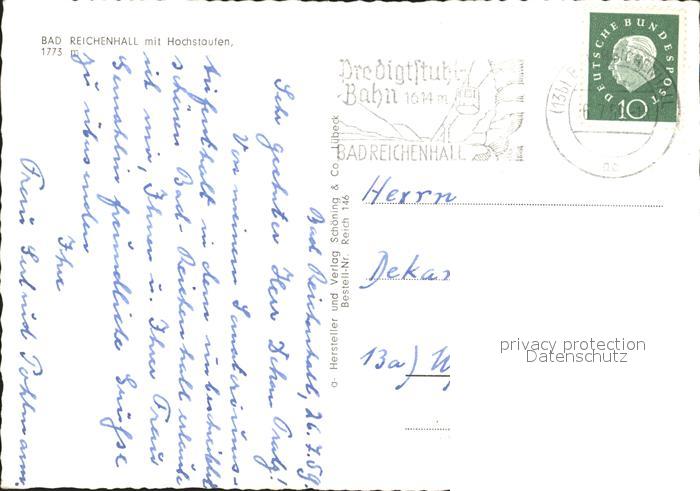 BAD REICHENHALL mit Hochstaufen,
1773 m
Bad Reichenhall, 26.7.59.
Sehr geehrter Herr Dekan
Von meinem Sanatoriums-
Aufenthalt in dem unbeschreiblich
schönen Bad-Reichenhall erlaube
ich mir, Ihnen u. Ihrer Frau
Gemahlin freundliche Grüsse
zu übersenden
Ihre
Frau Gertrud Pohlmann
a- Hersteller und Verlag Schöning & Co., Lübeck
Bestell-Nr. Reich 146
Predigtstuhl
Bahn 1614 m
BAD REICHENHALL
DEUTSCHE BUNDESPOST
10
(13b)
Herrn
Dekan
13a)
privacy protection
Datenschutz